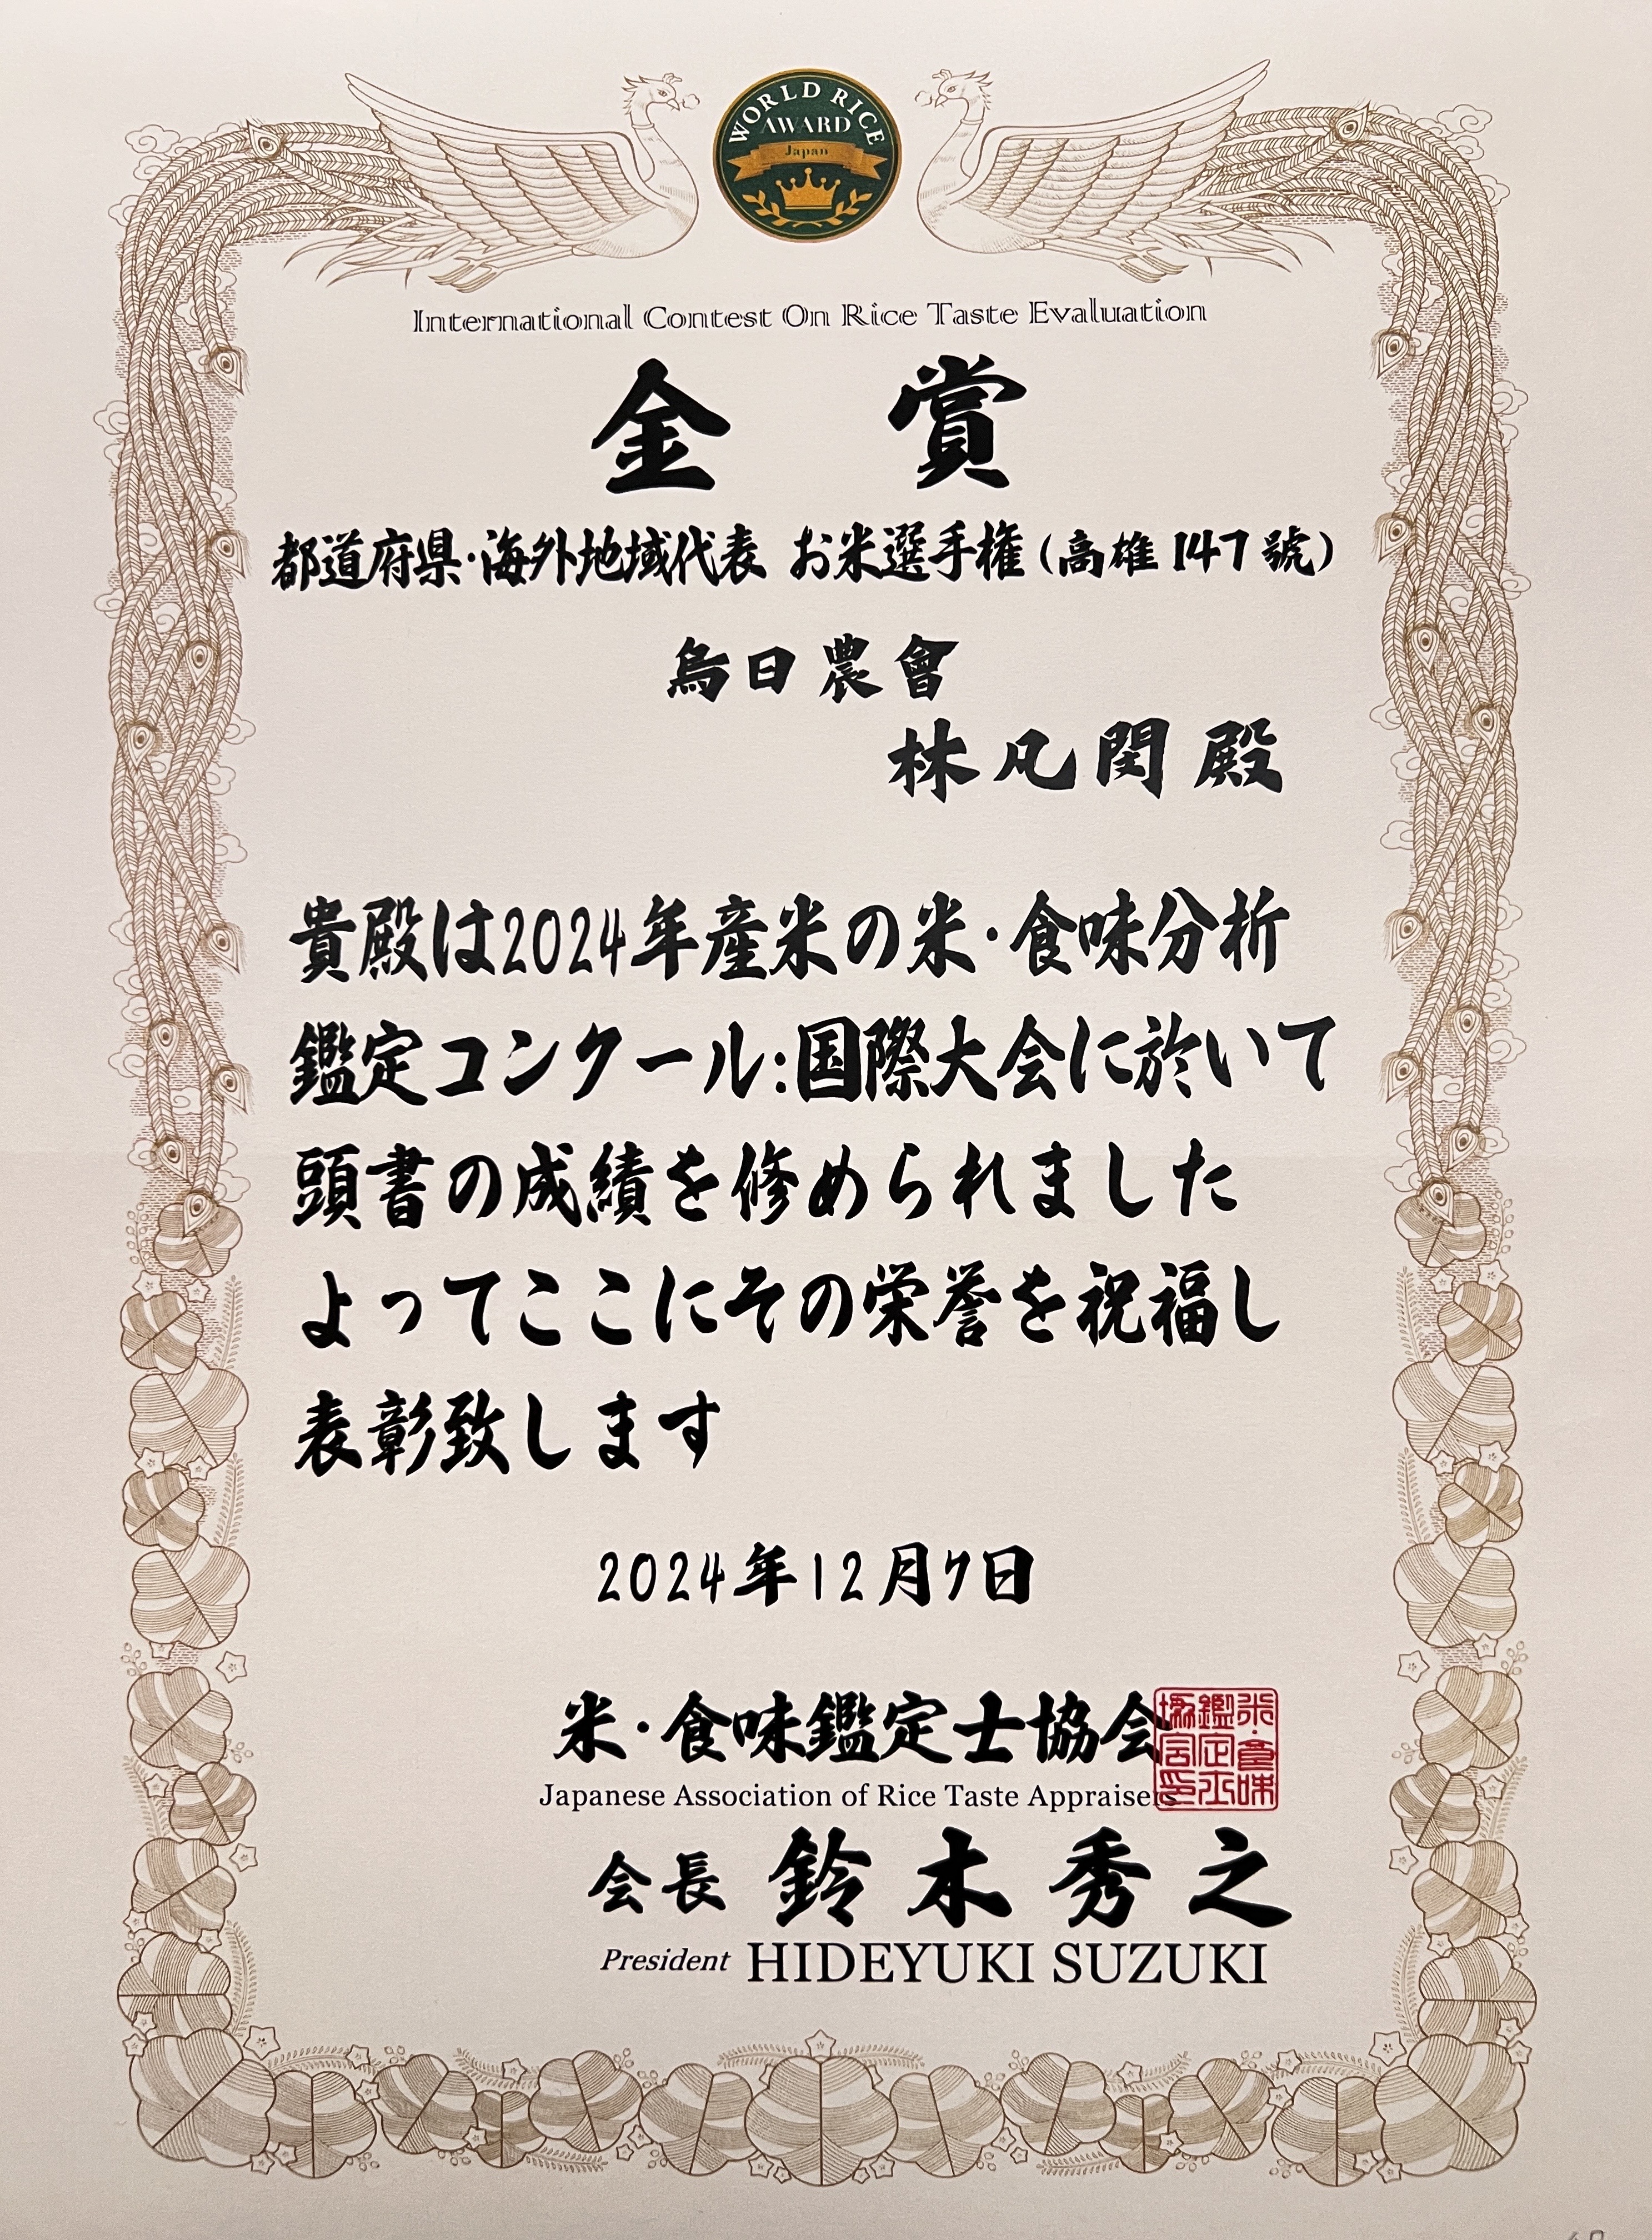 WORLD RICE
AWARD
Japan
International Contest On Rice Taste Evaluation
金 賞
都道府県・海外地域代表 お米選手権(高雄147號)
烏日農會
林凡閔 殿
貴殿は2024年産米の米・食味分析
鑑定コンクール:国際大会に於いて
頭書の成績を修められました
よってここにその栄誉を祝福し
表彰致します
2024年12月7日
米・食味鑑定士協会
Japanese Association of Rice Taste Appraisers
会長 鈴木秀之
President HIDEYUKI SUZUKI